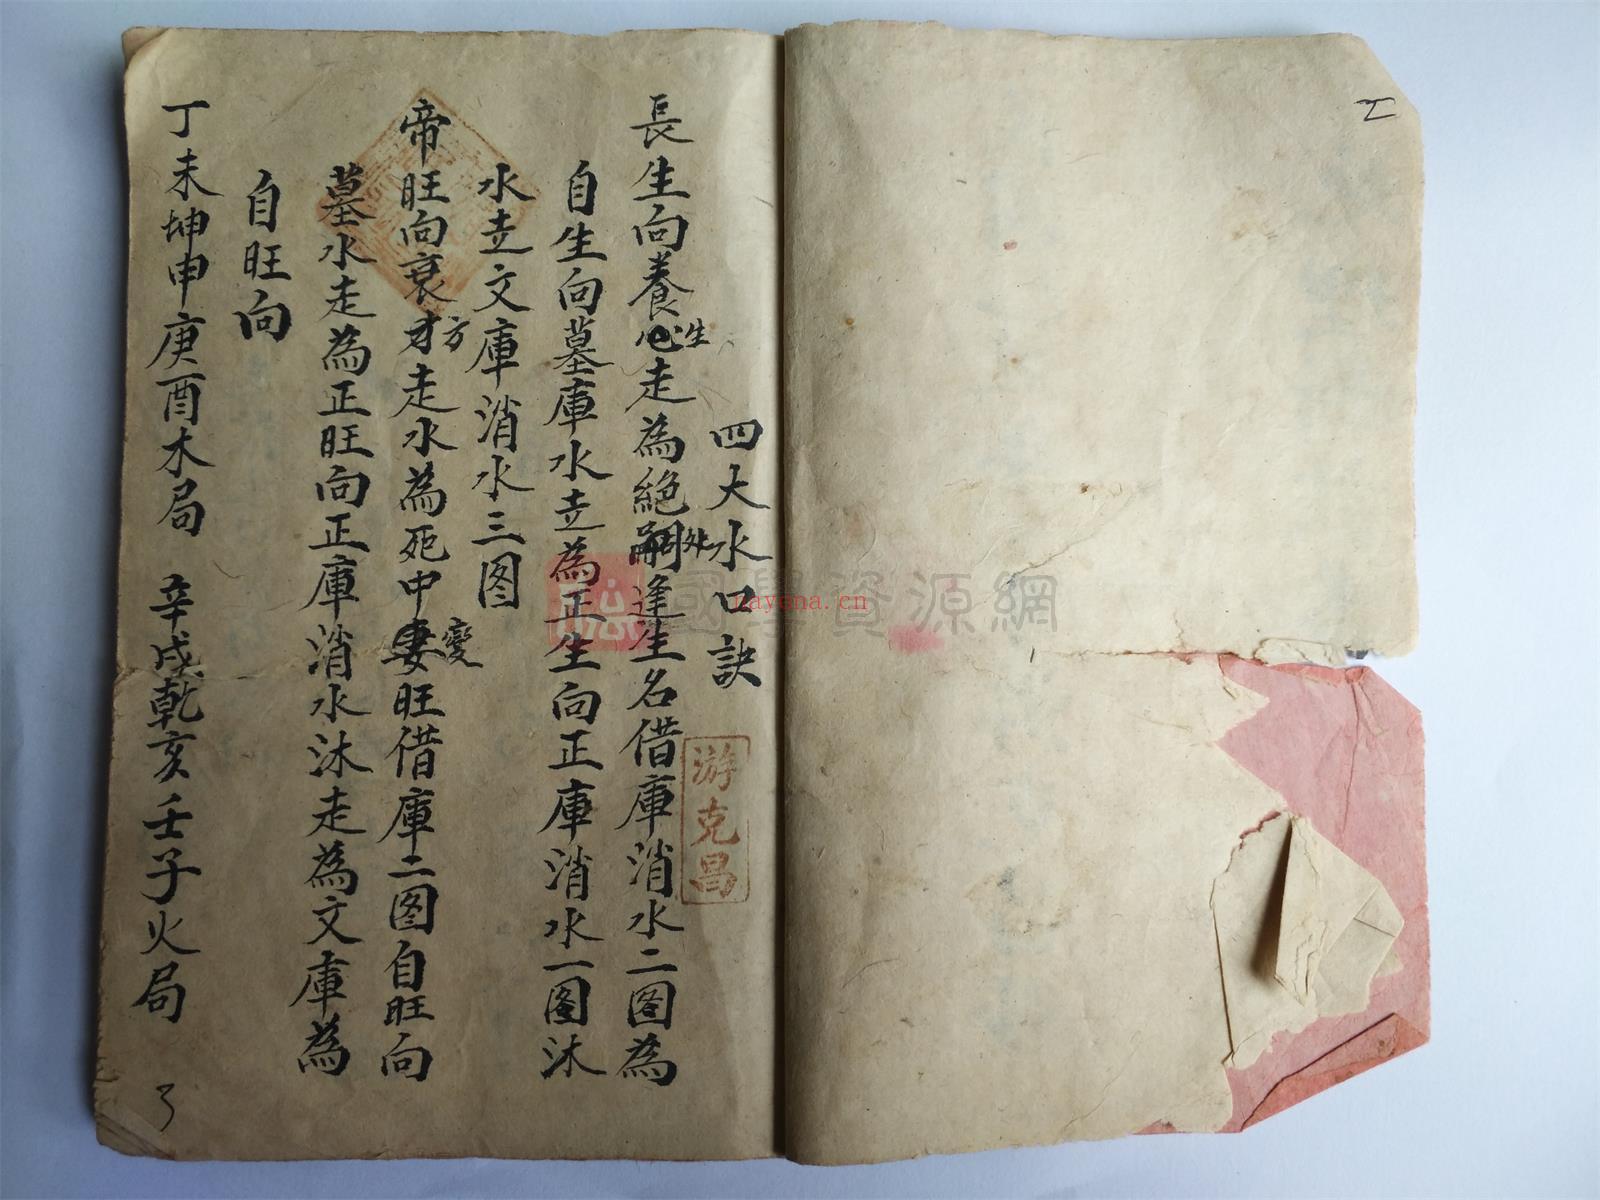 四大水口訣
游克昌
長生向養心生走為絕嗣处逢生名借庫消水二图為
自生向墓庫水走為正生向正庫消水一图沐
水走文庫消水三图
帝旺向衰才方走水為死中妻變旺借庫二图自旺向
墓水走為正旺向正庫消水沐走為文庫為
自旺向
丁未坤申庚酉木局 辛戌乾亥壬子火局
國學資源網
nayona.cn